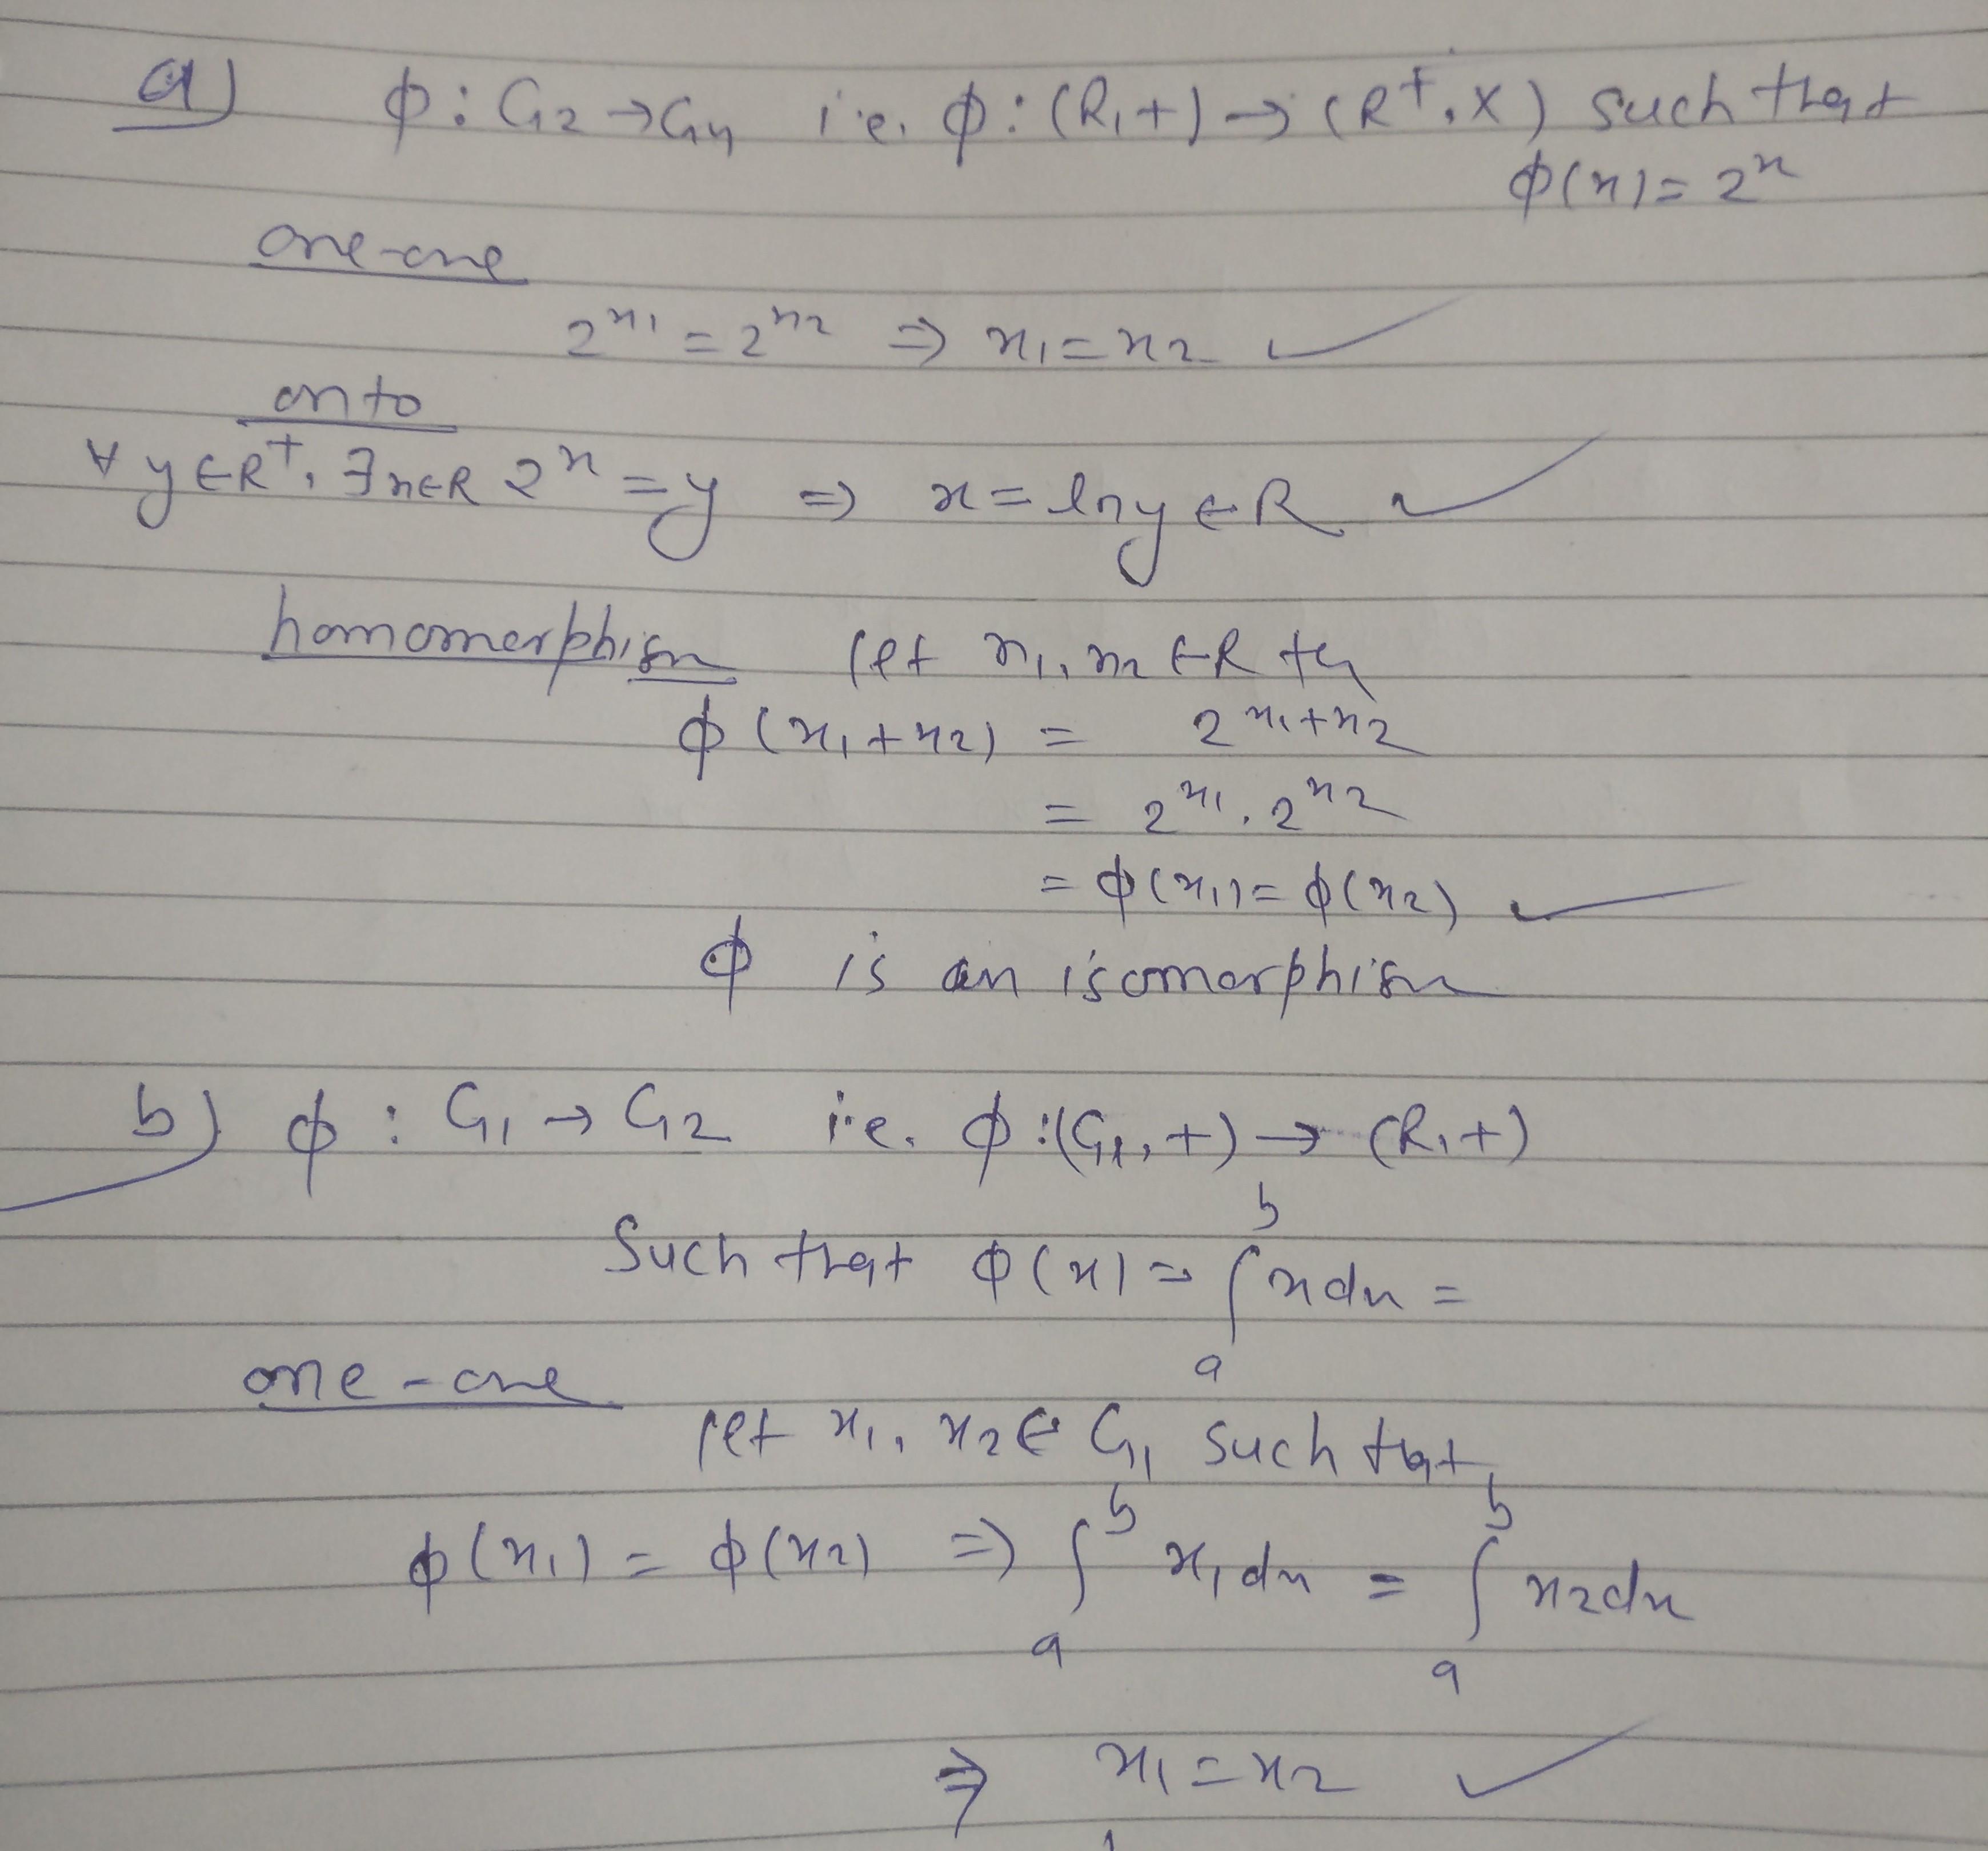 a) ϕ : G2 → G4 i.e. ϕ : (R, +) → (R⁺, ×) such that
ϕ(x) = 2^x
one-one
2^x1 = 2^x2 ⇒ x1 = x2 ✓
onto
∀ y ∈ R⁺, ∃ x ∈ R 2^x = y ⇒ x = ln y ∈ R ✓
homomorphism let x1, x2 ∈ R
ϕ(x1 + x2) = 2^x1+x2
= 2^x1 . 2^x2
= ϕ(x1) = ϕ(x2) ✓
ϕ is an isomorphism
b) ϕ : G1 → G2 i.e. ϕ : (G1, +) → (R, +)
Such that ϕ(x) = ∫_a^b x dx =
one-one
let x1, x2 ∈ G1 such that
ϕ(x1) = ϕ(x2) ⇒ ∫_a^b x1 dx = ∫_a^b x2 dx
⇒ x1 = x2 ✓